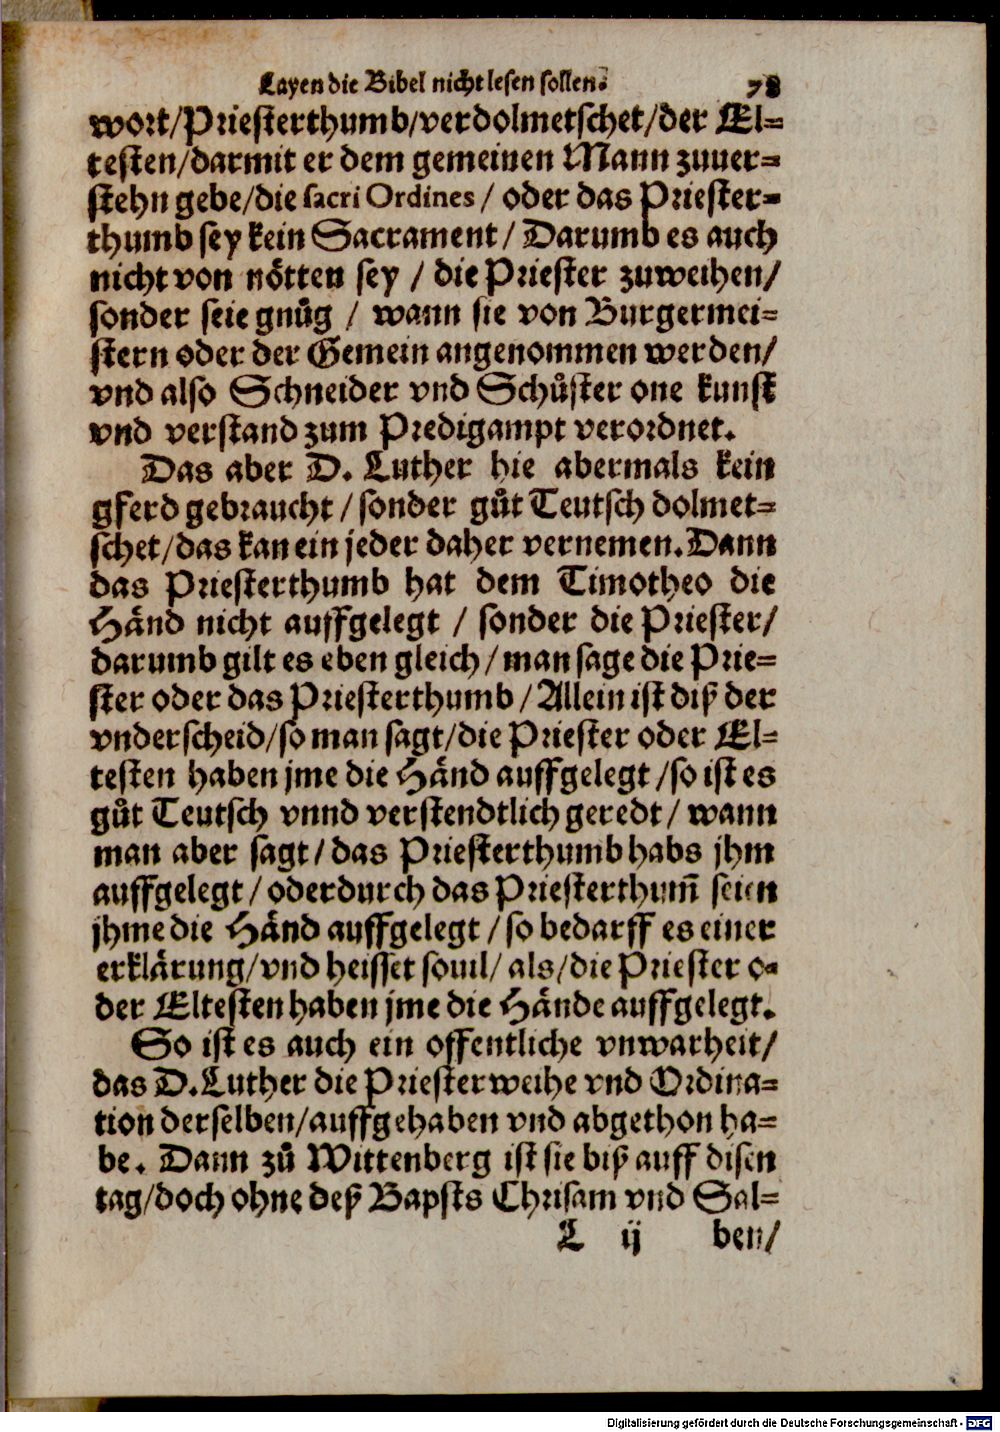 Layen die Bibel nicht lesen sollen. 78
wort/Priesterthumb/verdolmetschet/der El=
testen/darmit er dem gemeinen Mann zuuer=
stehn gebe/die sacri Ordines / oder das Priester=
thumb sey kein Sacrament / Darumb es auch
nicht von nötten sey / die Priester zuweihen/
sonder seie gnůg / wann sie von Burgermei=
stern oder der Gemein angenommen werden/
vnd also Schneider vnd Schůster one kunst
vnd verstand zum Predigampt verordnet.
Das aber D. Luther hie abermals kein
gferd gebraucht / sonder gůt Teutsch dolmet=
schet/das kan ein jeder daher vernemen. Dann
das Priesterthumb hat dem Timotheo die
Händ nicht auffgelegt / sonder die Priester/
darumb gilt es eben gleich / man sage die Prie=
ster oder das Priesterthumb / Allein ist diß der
vnderscheid/so man sagt/die Priester oder El=
testen haben jme die Händ auffgelegt /so ist es
gůt Teutsch vnnd verstendtlich geredt / wann
man aber sagt / das Priesterthumb habs jhm
auffgelegt / oder durch das Priesterthum̃ seien
jhme die Händ auffgelegt / so bedarff es einer
erklärung/vnd heisset souil/ als/die Priester o=
der Eltesten haben jme die Hände auffgelegt.
So ist es auch ein offentliche vnwarheit/
das D. Luther die Priesterweihe vnd Ordina=
tion derselben/auffgehaben vnd abgethon ha=
be. Dann zů Wittenberg ist sie biß auff disen
tag/doch ohne deß Bapsts Chrisam vnd Sal=
L ij ben/
Digitalisierung gefördert durch die Deutsche Forschungsgemeinschaft - DFG